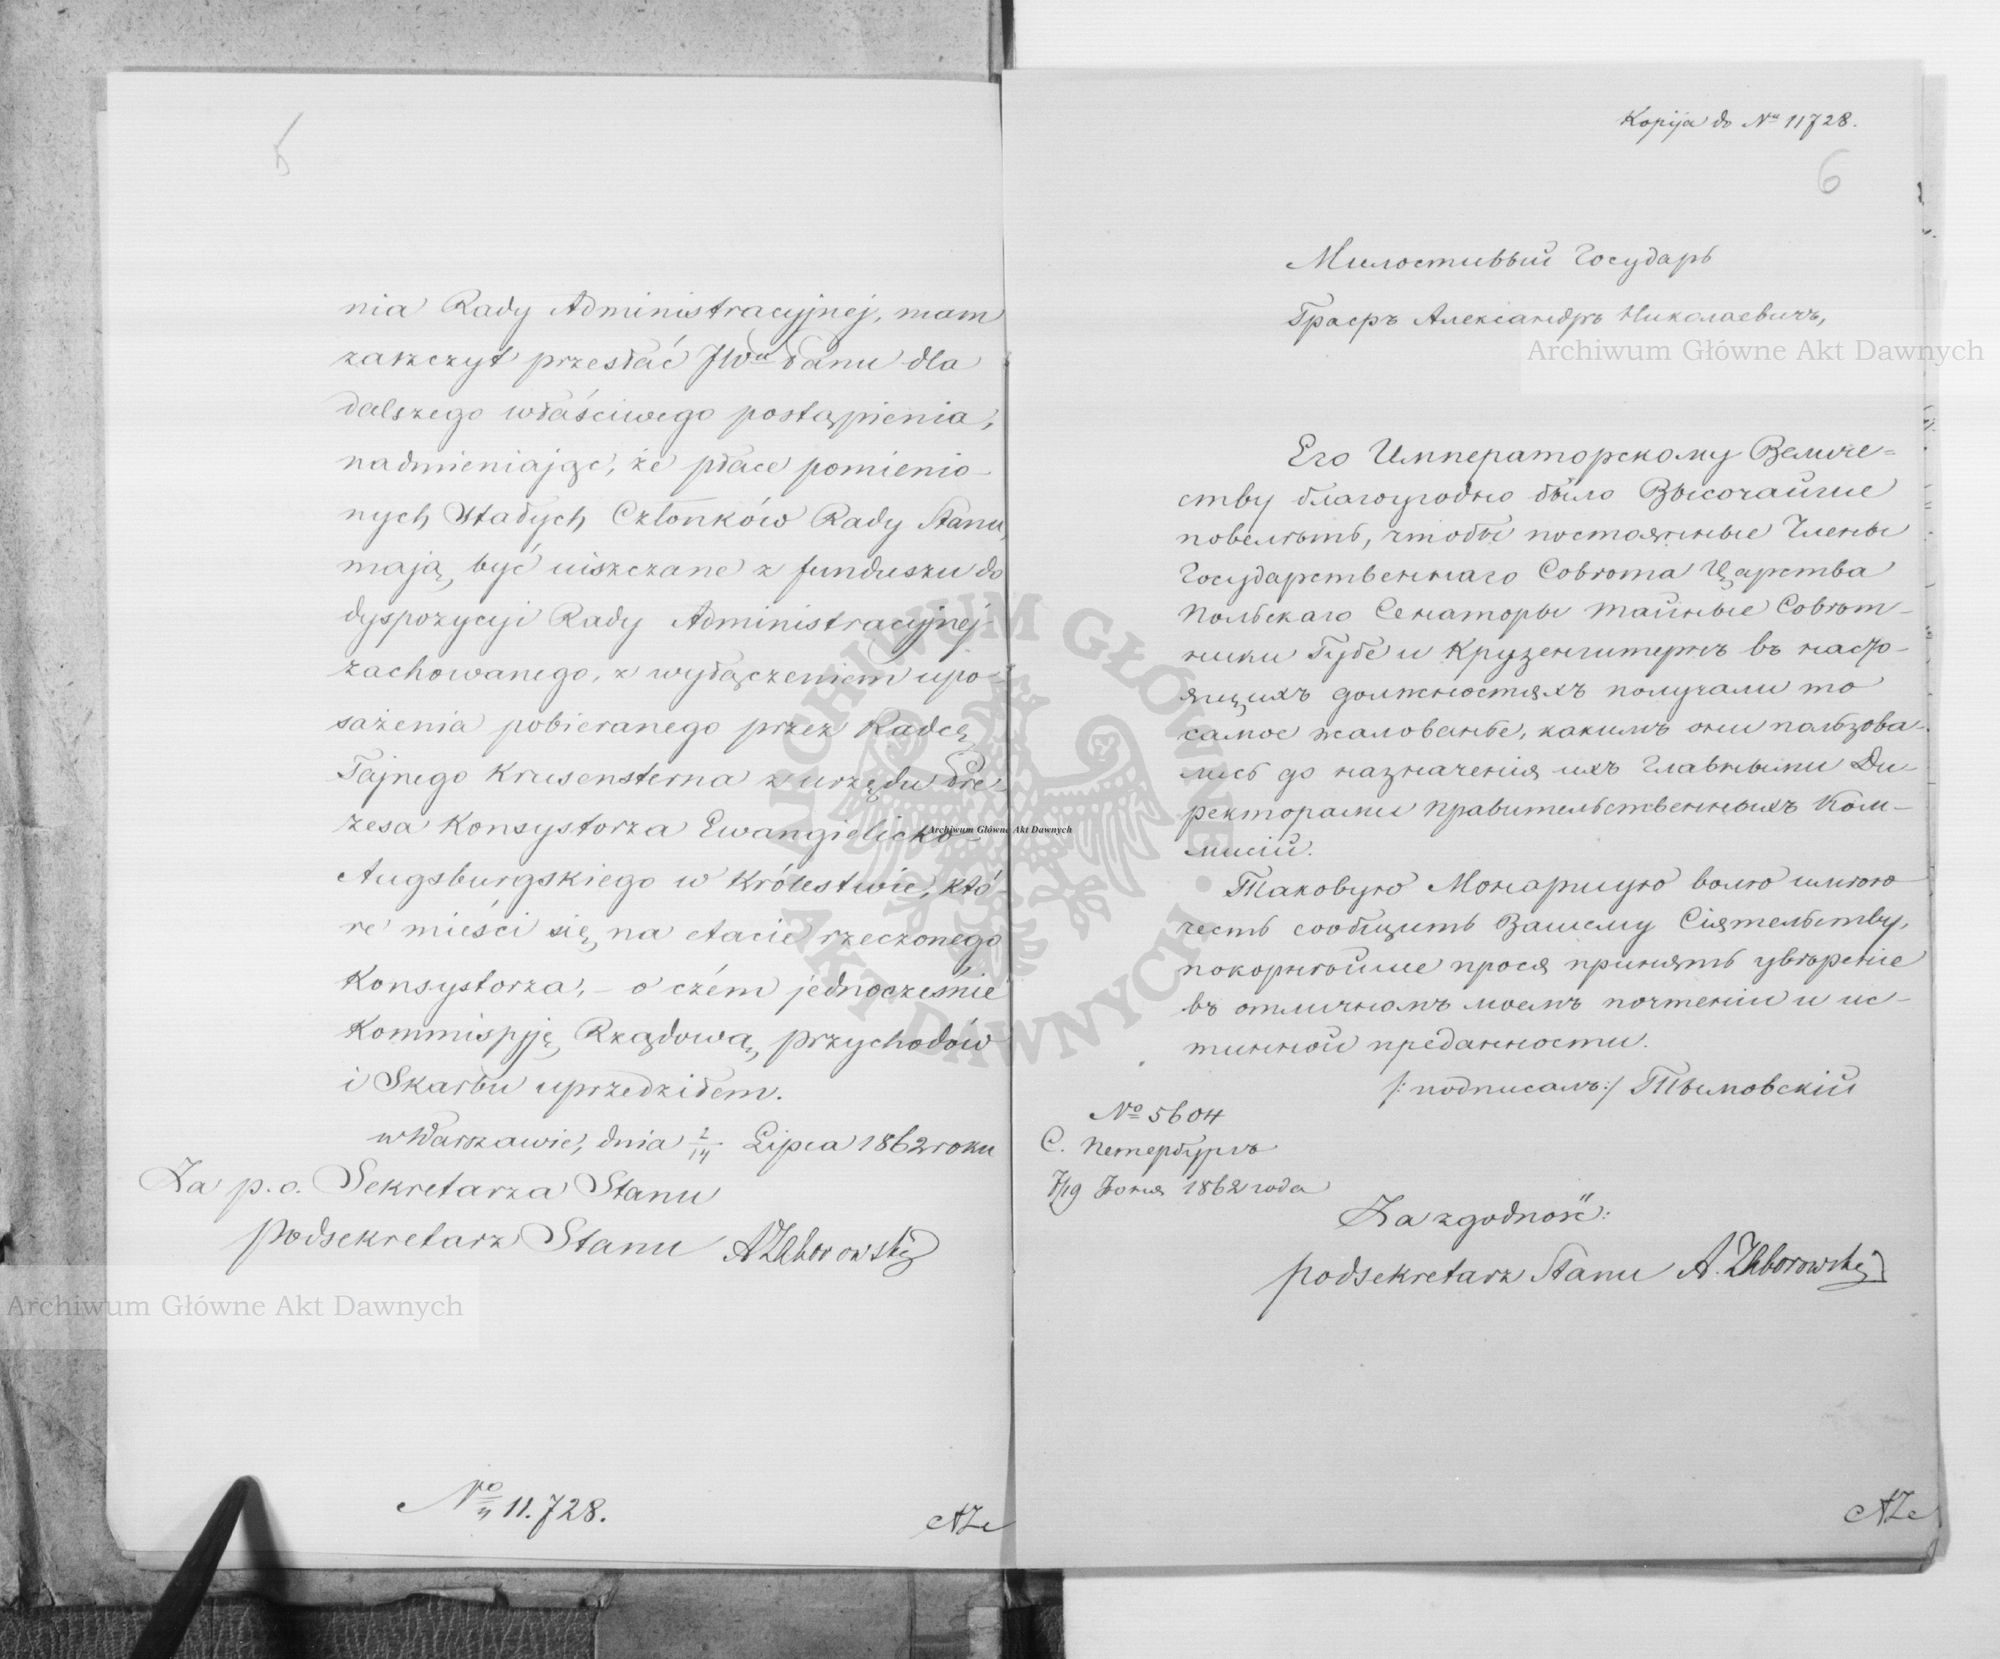 5
nia Rady Administracyjnej, mam
zaszczyt przesłać JWu Panu dla
dalszego właściwego postąpienia,
nadmieniając, że płace pomienio-
nych Stałych Członków Rady Stanu,
mają być uiszczane z funduszu do
dyspozycyi Rady Administracyjnej
zachowanego, z wyłączeniem upo-
sażenia pobieranego przez Radcę
Tajnego Krusensterna z urzędu Pre-
zesa Konsystorza Ewangielicko-
Augsburgskiego w Królestwie, któ-
re mieści się na etacie rzeczonego
Konsystorza, - o czém jednocześnie
Kommissyję Rządową przychodów
i Skarbu uprzedziłem.
w Warszawie, dnia 2/14 Lipca 1862 roku
Za p.o. Sekretarza Stanu
Podsekretarz Stanu AZaborowski
№ 11.728.
AZa
Kopija do Nu 11728.
6
Милостивый Государь
Графъ Александръ Николаевичъ,
Его Императорскому Величе=
ству благоугодно было Высочайше
повелѣть, чтобы постоянные Члены
Государственнаго Совѣта Царства
Польскаго Сенаторы тайные Совѣт-
ники Губе и Крузенштернъ въ насто-
ящихъ должностяхъ получали то
самое жалованье, какимъ они пользова-
лись до назначенія ихъ Главными Ди-
ректорами Правительственныхъ Ком-
мисій.
Таковую Монаршую волю имѣю
честь сообщить Вашему Сіятельству,
покорнѣйше прося принять увѣреніе
въ отличномъ моемъ почтеніи и ис-
тинной преданности.
/: подписалъ :/ Тымовскій
№ 5604
С. Петербургъ
7/19 Іюня 1862 года
Za zgodność:
Podsekretarz Stanu A. Zaborowski
AZa
Archiwum Główne Akt Dawnych
Archiwum Główne Akt Dawnych
Archiwum Główne Akt Dawnych
ARCHIWUM GŁÓWNE • AKT DAWNYCH •